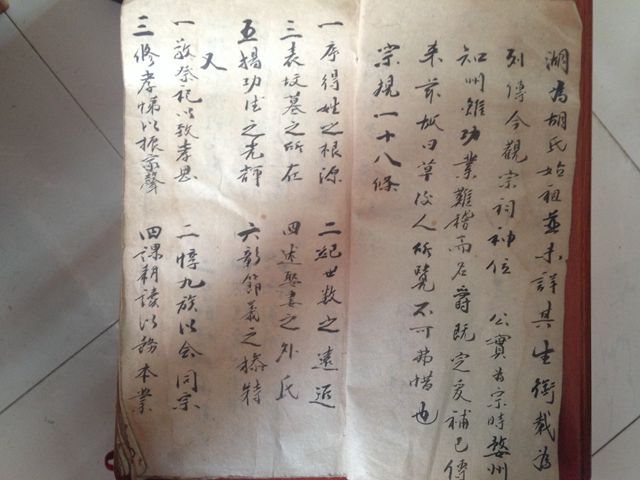 湖為胡氏始祖並未詳其生衔載為
列傳今觀宗祠神位 公實為宗時婺州
知州雖功業難稽而名爵既定爰補已傳
来茲故曰草後人所覽不可弗惜也
宗規一十八條
一序得姓之根源 二紀世数之遠近
三表坟墓之所在 四述娶妻之外氏
五揚功法之光輝 六彰節義之操特
又
一敬祭祀以致孝思 二惇九族以会同宗
三修孝悌以振家聲 四課耕讀以務本業